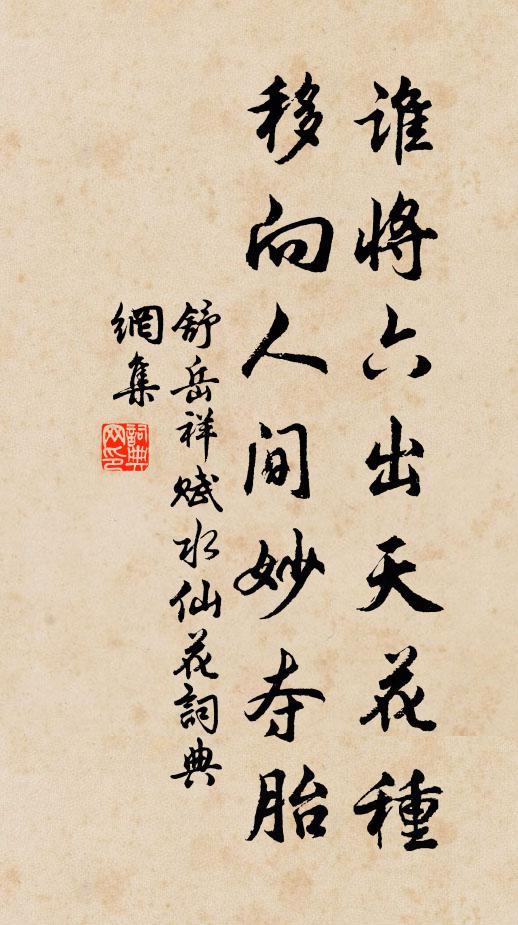 誰將六出天花種
移向人间妙夺胎
舒岳祥赋水仙花詞典
網集
詞典
网印